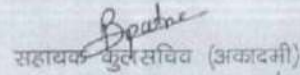 सहायक कुलसचिव (अकादमी)